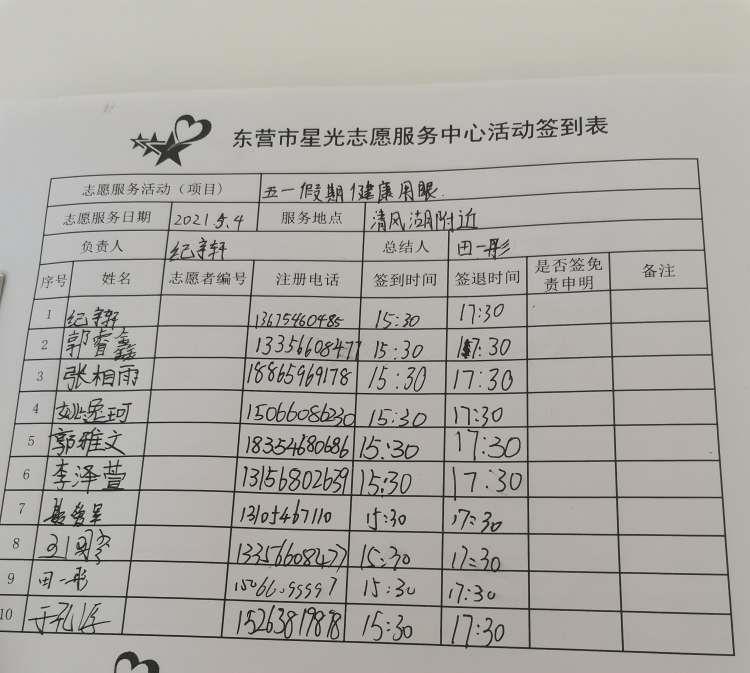 东营市星光志愿服务中心活动签到表
志愿服务活动（项目） 五一假期健康用眼.
志愿服务日期 2021.5.4 服务地点 清风湖附近
负责人 总结人 田一彤
序号 姓名 志愿者编号 注册电话 签到时间 签退时间 是否签免责申明 备注
1 13675460485 15:30 17:30
2 郭睿鑫 13356608477 15:30 17:30
3 张相雨 18865969178 15:30 17:30
4 15066086230 15:30 17:30
5 郭雅文 18354680686 15:30 17:30
6 李泽萱 13156802639 15:30 17:30
7 13105467110 15:30 17:30
8 13356608477 15:30 17:30
9 田一彤 15:30 17:30
10 15263819878 15:30 17:30